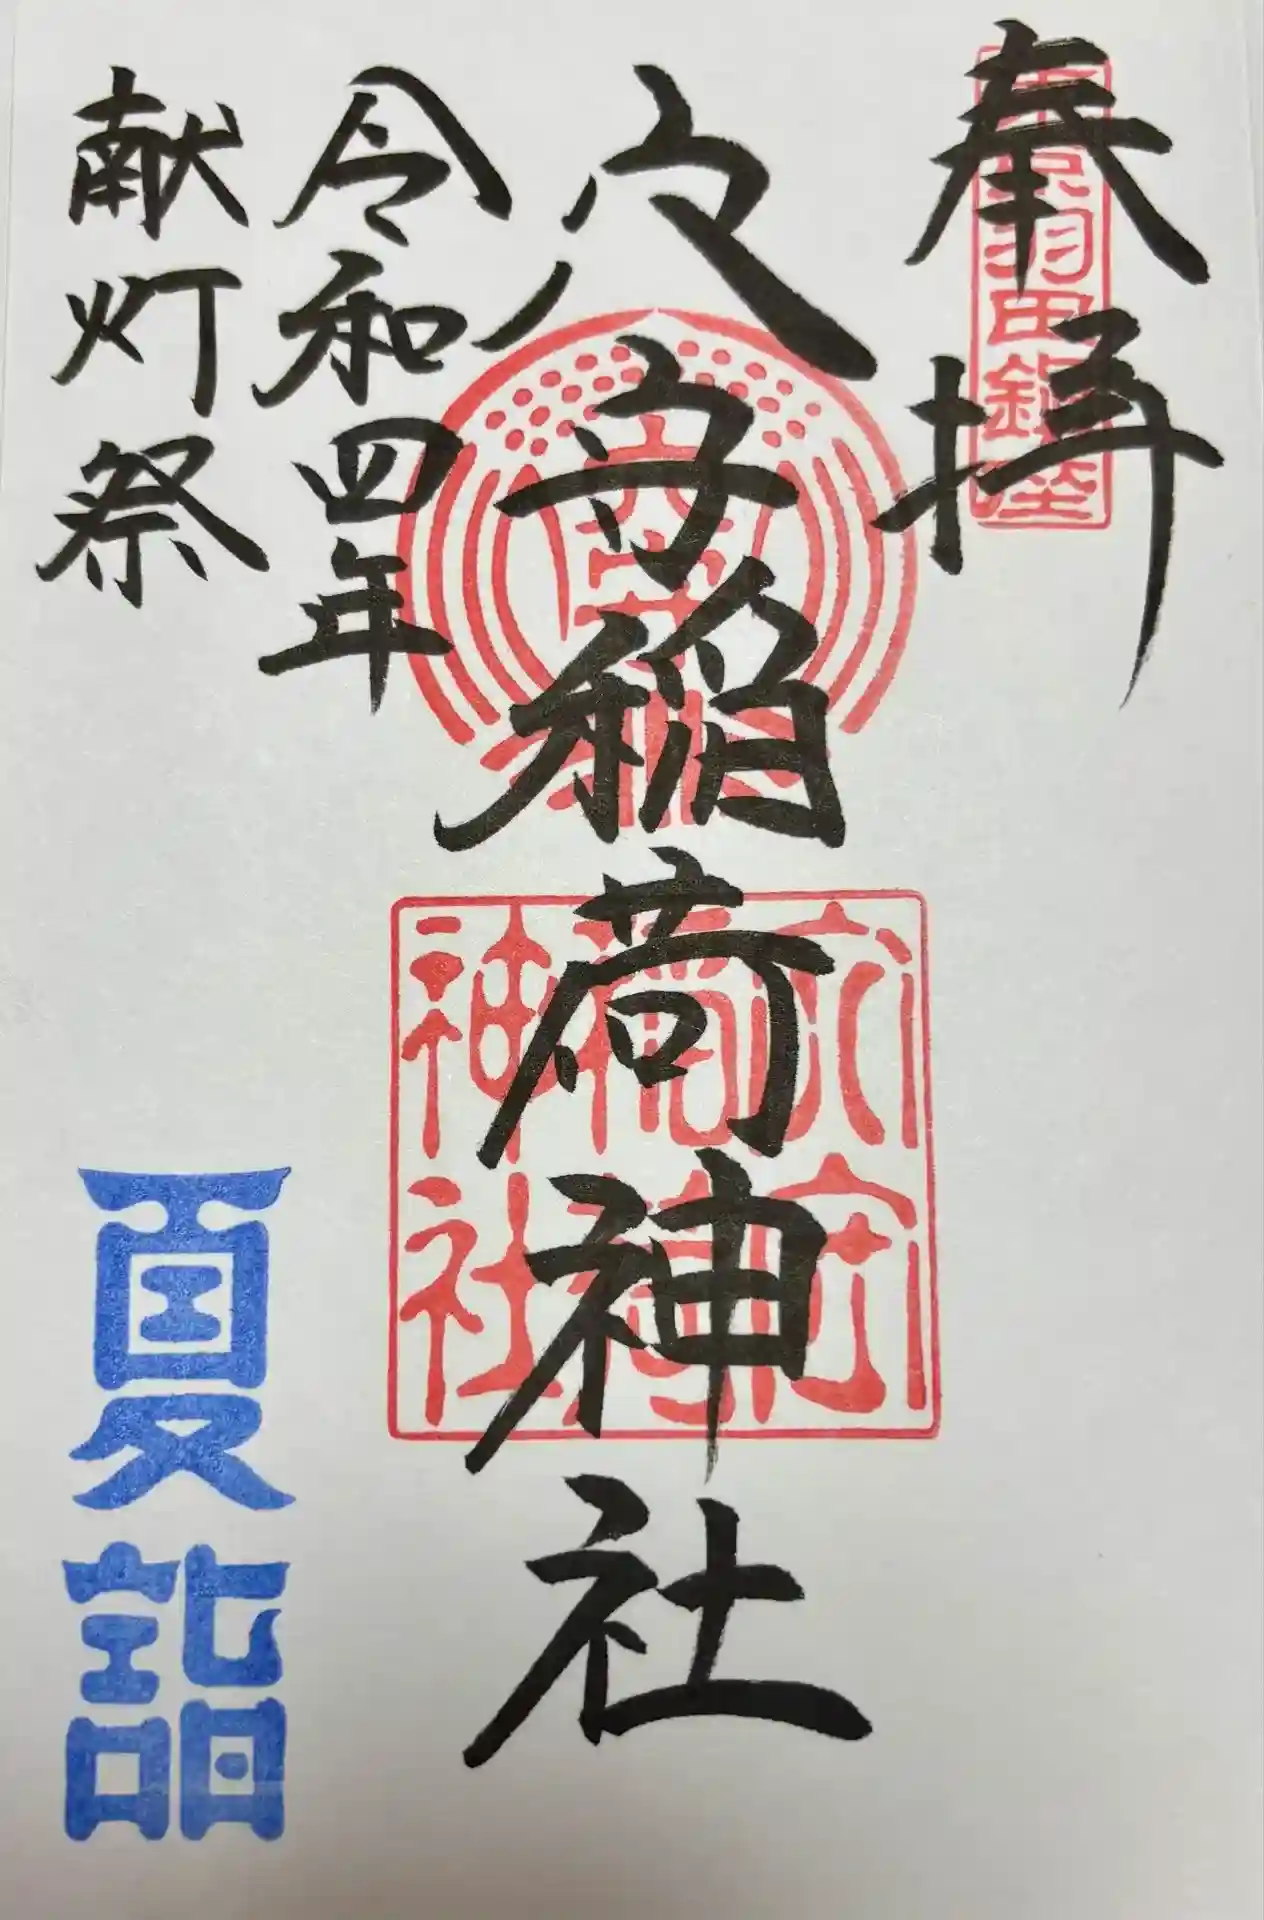 奉拝
東京羽田鎮座
穴守稲荷神社
穴守
稲荷
神社
令和四年
献灯祭
夏詣